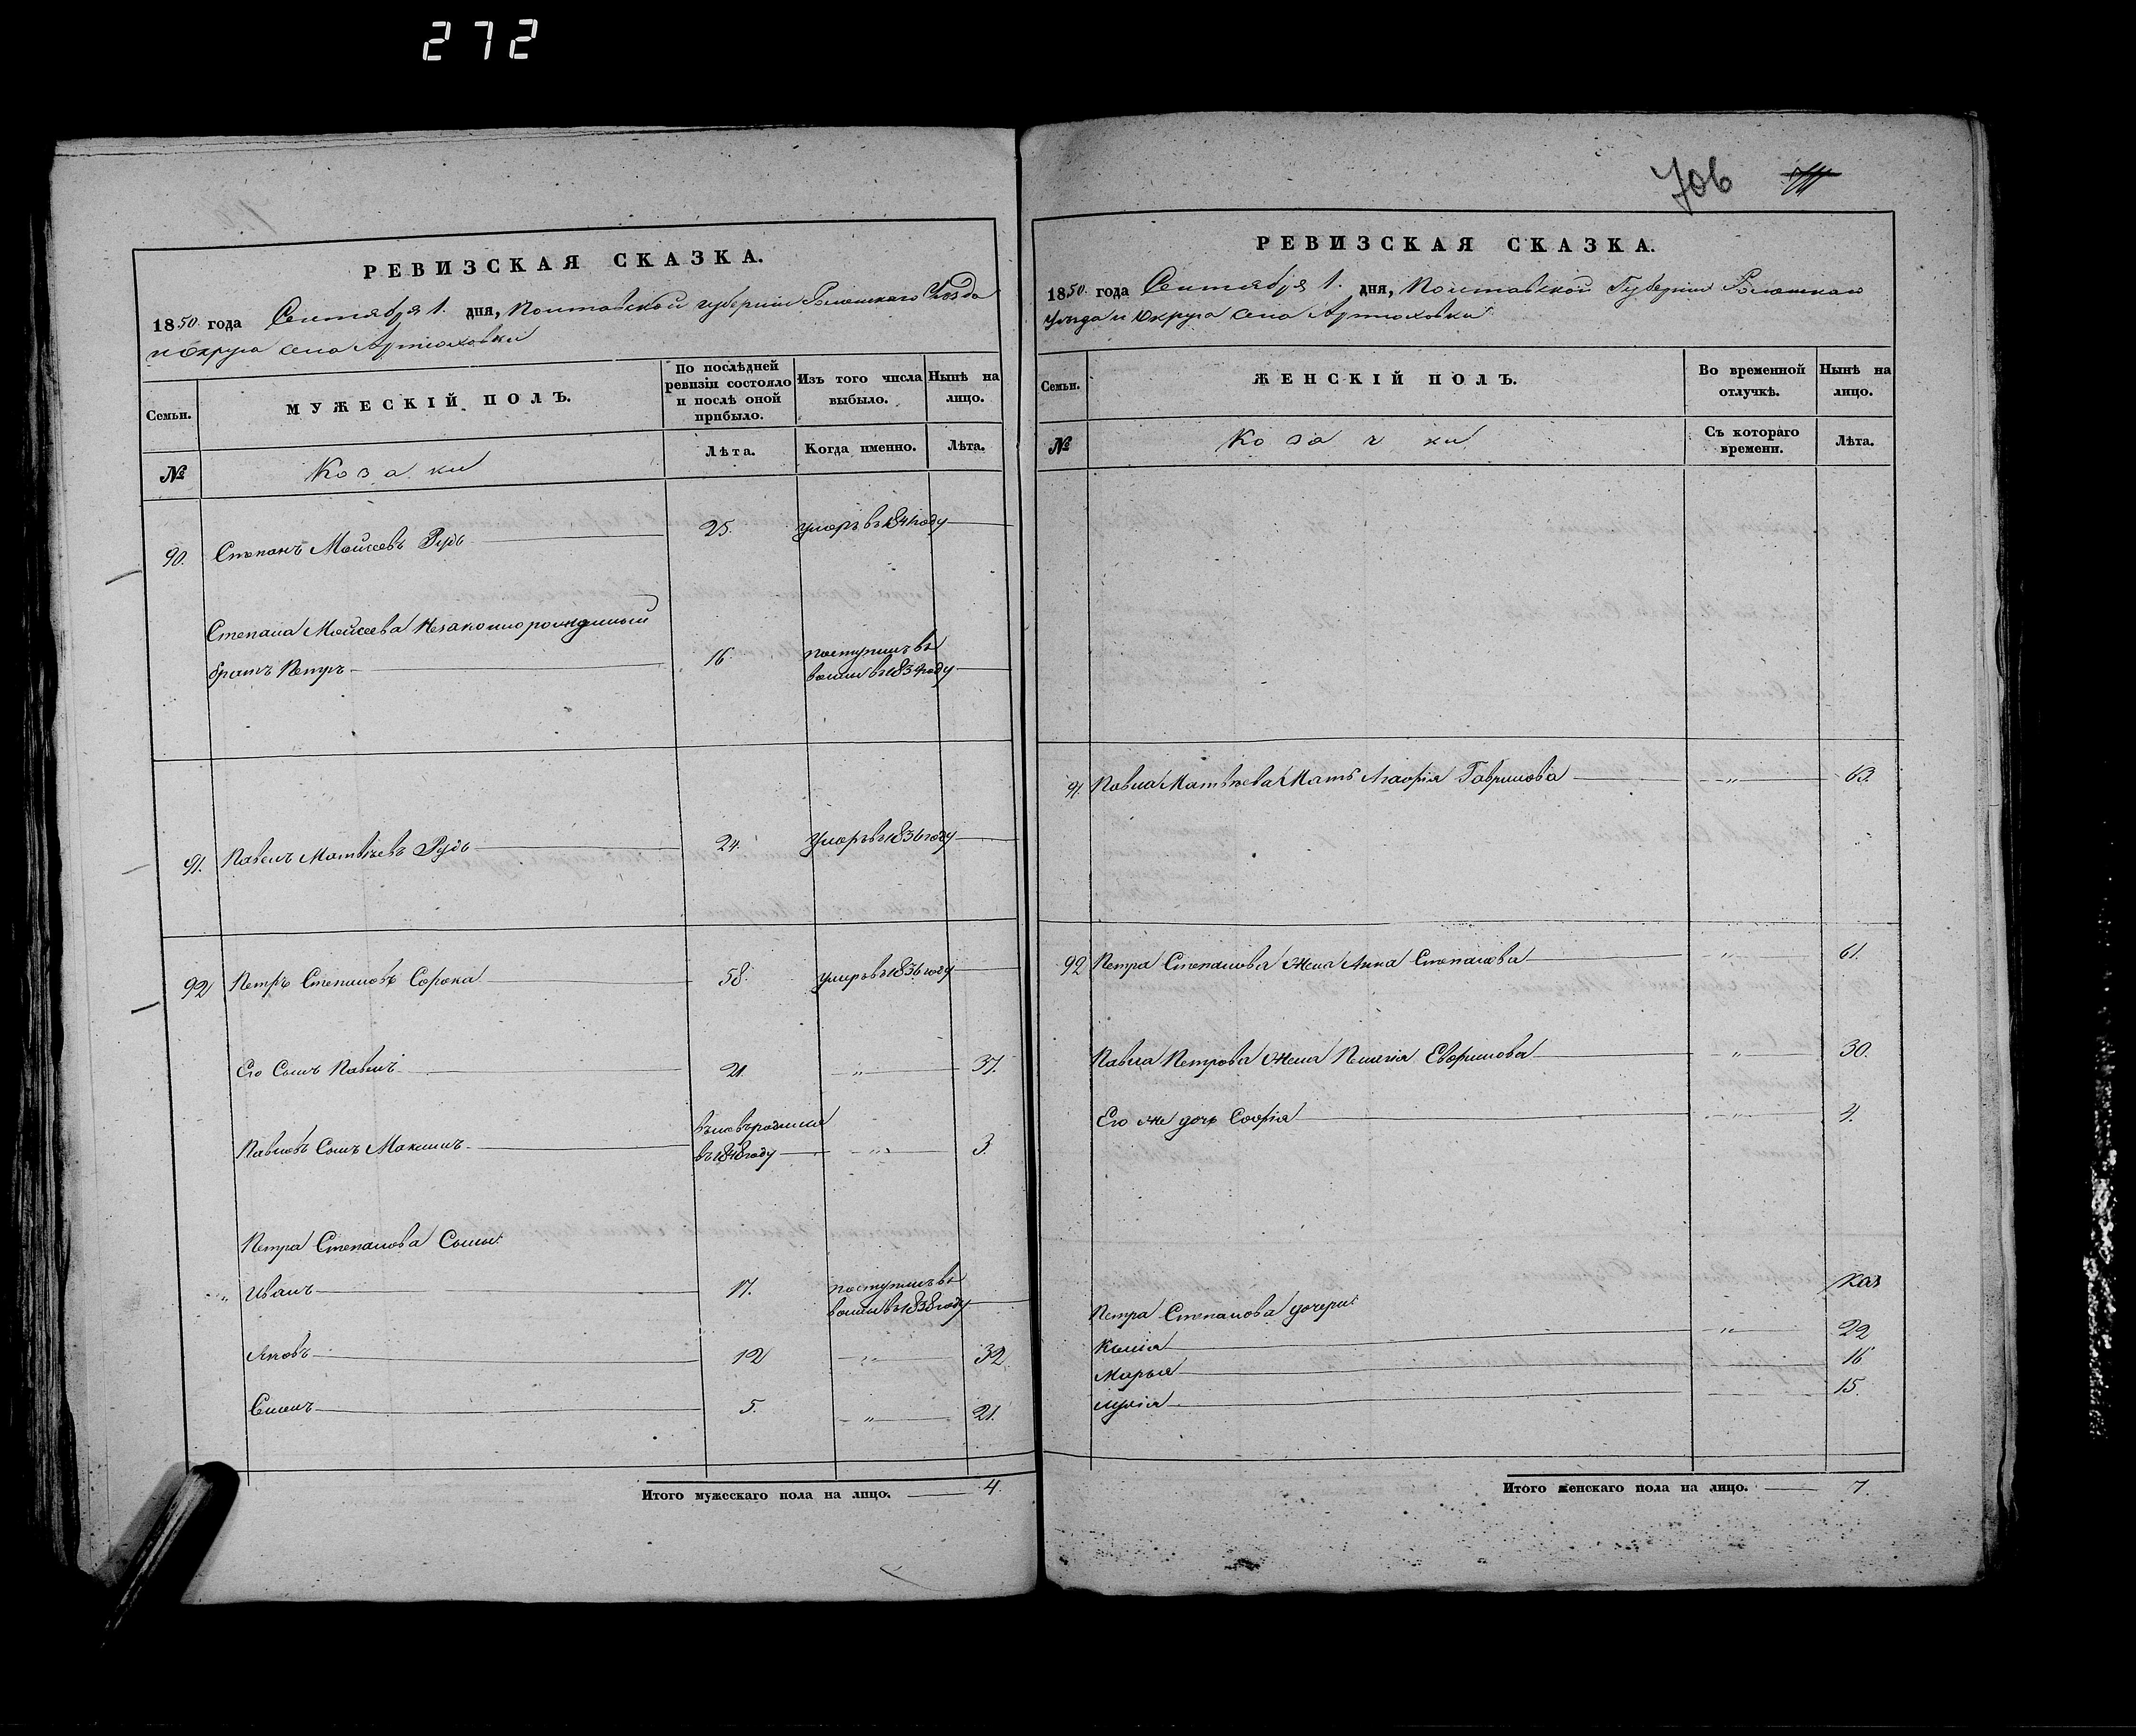 272
РЕВИЗСКАЯ СКАЗКА.
1850 года Сентября 1. дня, Полтавской губернии Роменскаго Уезда
и Округа села Артюховки
Семьи.
МУЖЕСКІЙ ПОЛЪ.
По послѣдней ревизіи состояло и послѣ оной прибыло.
Изъ того числа выбыло.
Нынѣ на лицо.
№
Козаки
Лѣта.
Когда именно.
Лѣта.
90. Степанъ Моисеевъ Рудь 25. умеръ в 1841 году
Степана Мойсеева Незаконнорожденный
братъ Петръ 16. поступилъ въ
воины въ 1834 году
91. Павелъ Матвѣевъ Рудь 24. Умеръ въ 1836 году
92 Петръ Степановъ Сорока 58. умеръ въ 1836 году
Его Сынъ Павелъ 21. " 37.
Павловъ Сынъ Максимъ
въ 1848 году " 3.
Петра Степанова Сыны:
" Иванъ 17. поступилъ въ
воины въ 1838 году
Яковъ 12 " 32.
Семенъ 5. " 21.
Итого мужескаго пола на лицо. 4.
706
РЕВИЗСКАЯ СКАЗКА.
1850 года Сентября 1. дня, Полтавской Губернии Роменскаго
уезда и Округа села Артюховки
Семьи.
ЖЕНСКІЙ ПОЛЪ.
Во временной отлучкѣ.
Нынѣ на лицо.
№
Козачки
Съ котораго времени.
Лѣта.
91. Павла Матвѣева Мать Агафія Гаврилова " 63.
92 Петра Степанова Жена Анна Степанова " 61.
Павла Петрова Жена Пелагія Евфимова " 30.
Его же дочь Софія " 4.
Петра Степанова дочери:
" 22
Марья 16
15.
Итого женскаго пола на лицо. 7.